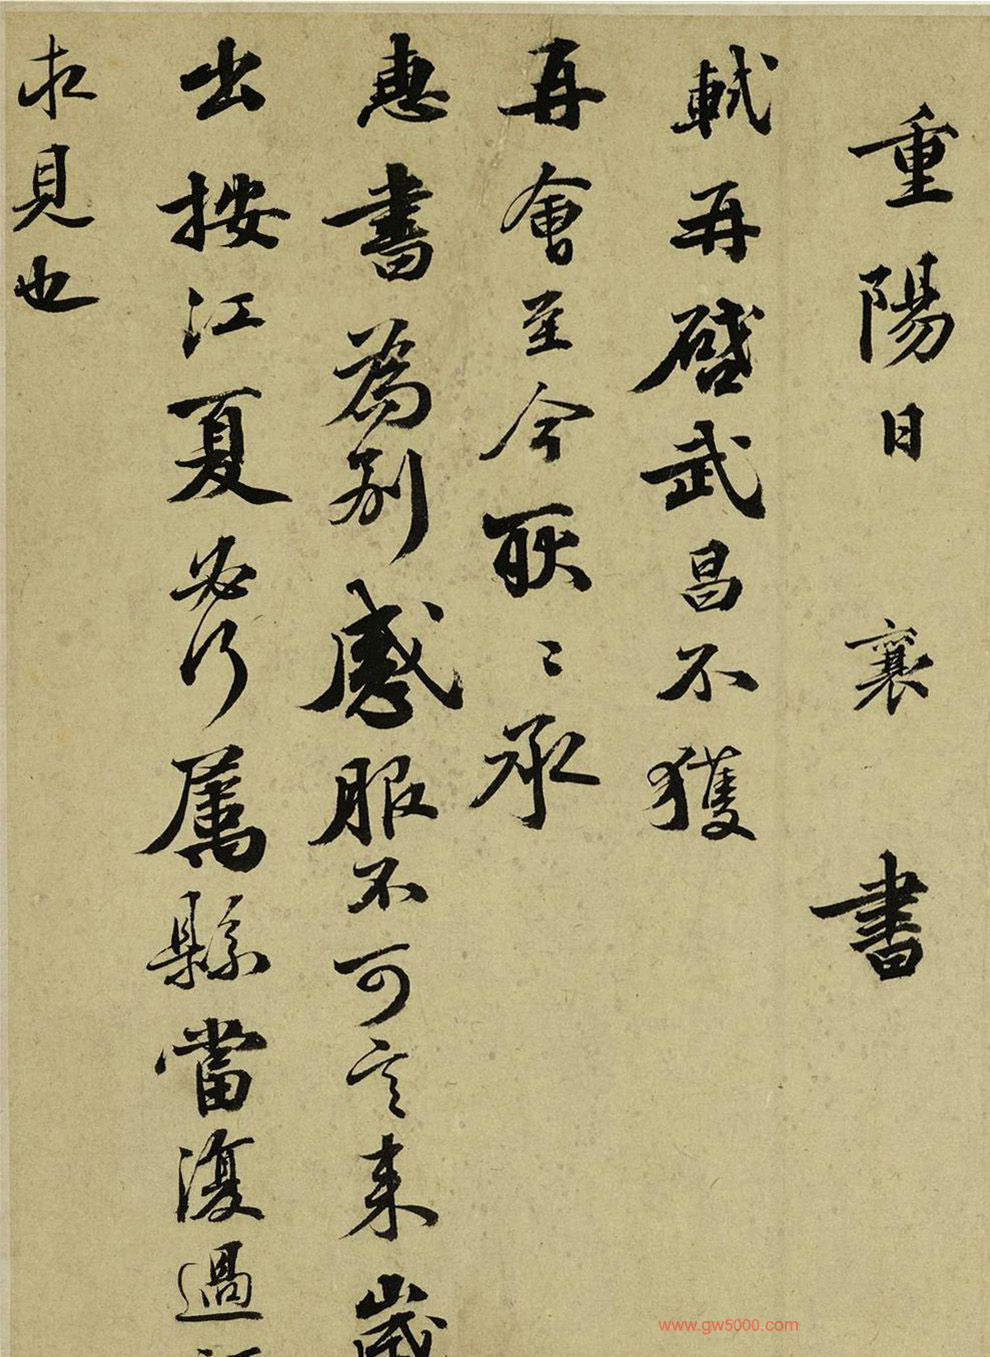 重陽日 襄 書
軾再啓武昌不獲
再會至今耿〻承
惠書為別感服不可言来歲
出按江夏必行属縣當復過
求見也
www.gw5000.com